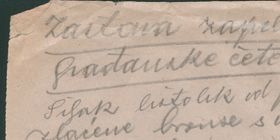 Zastava zape
građanske čete
Šiljak listolik od
zlaćene bronse s